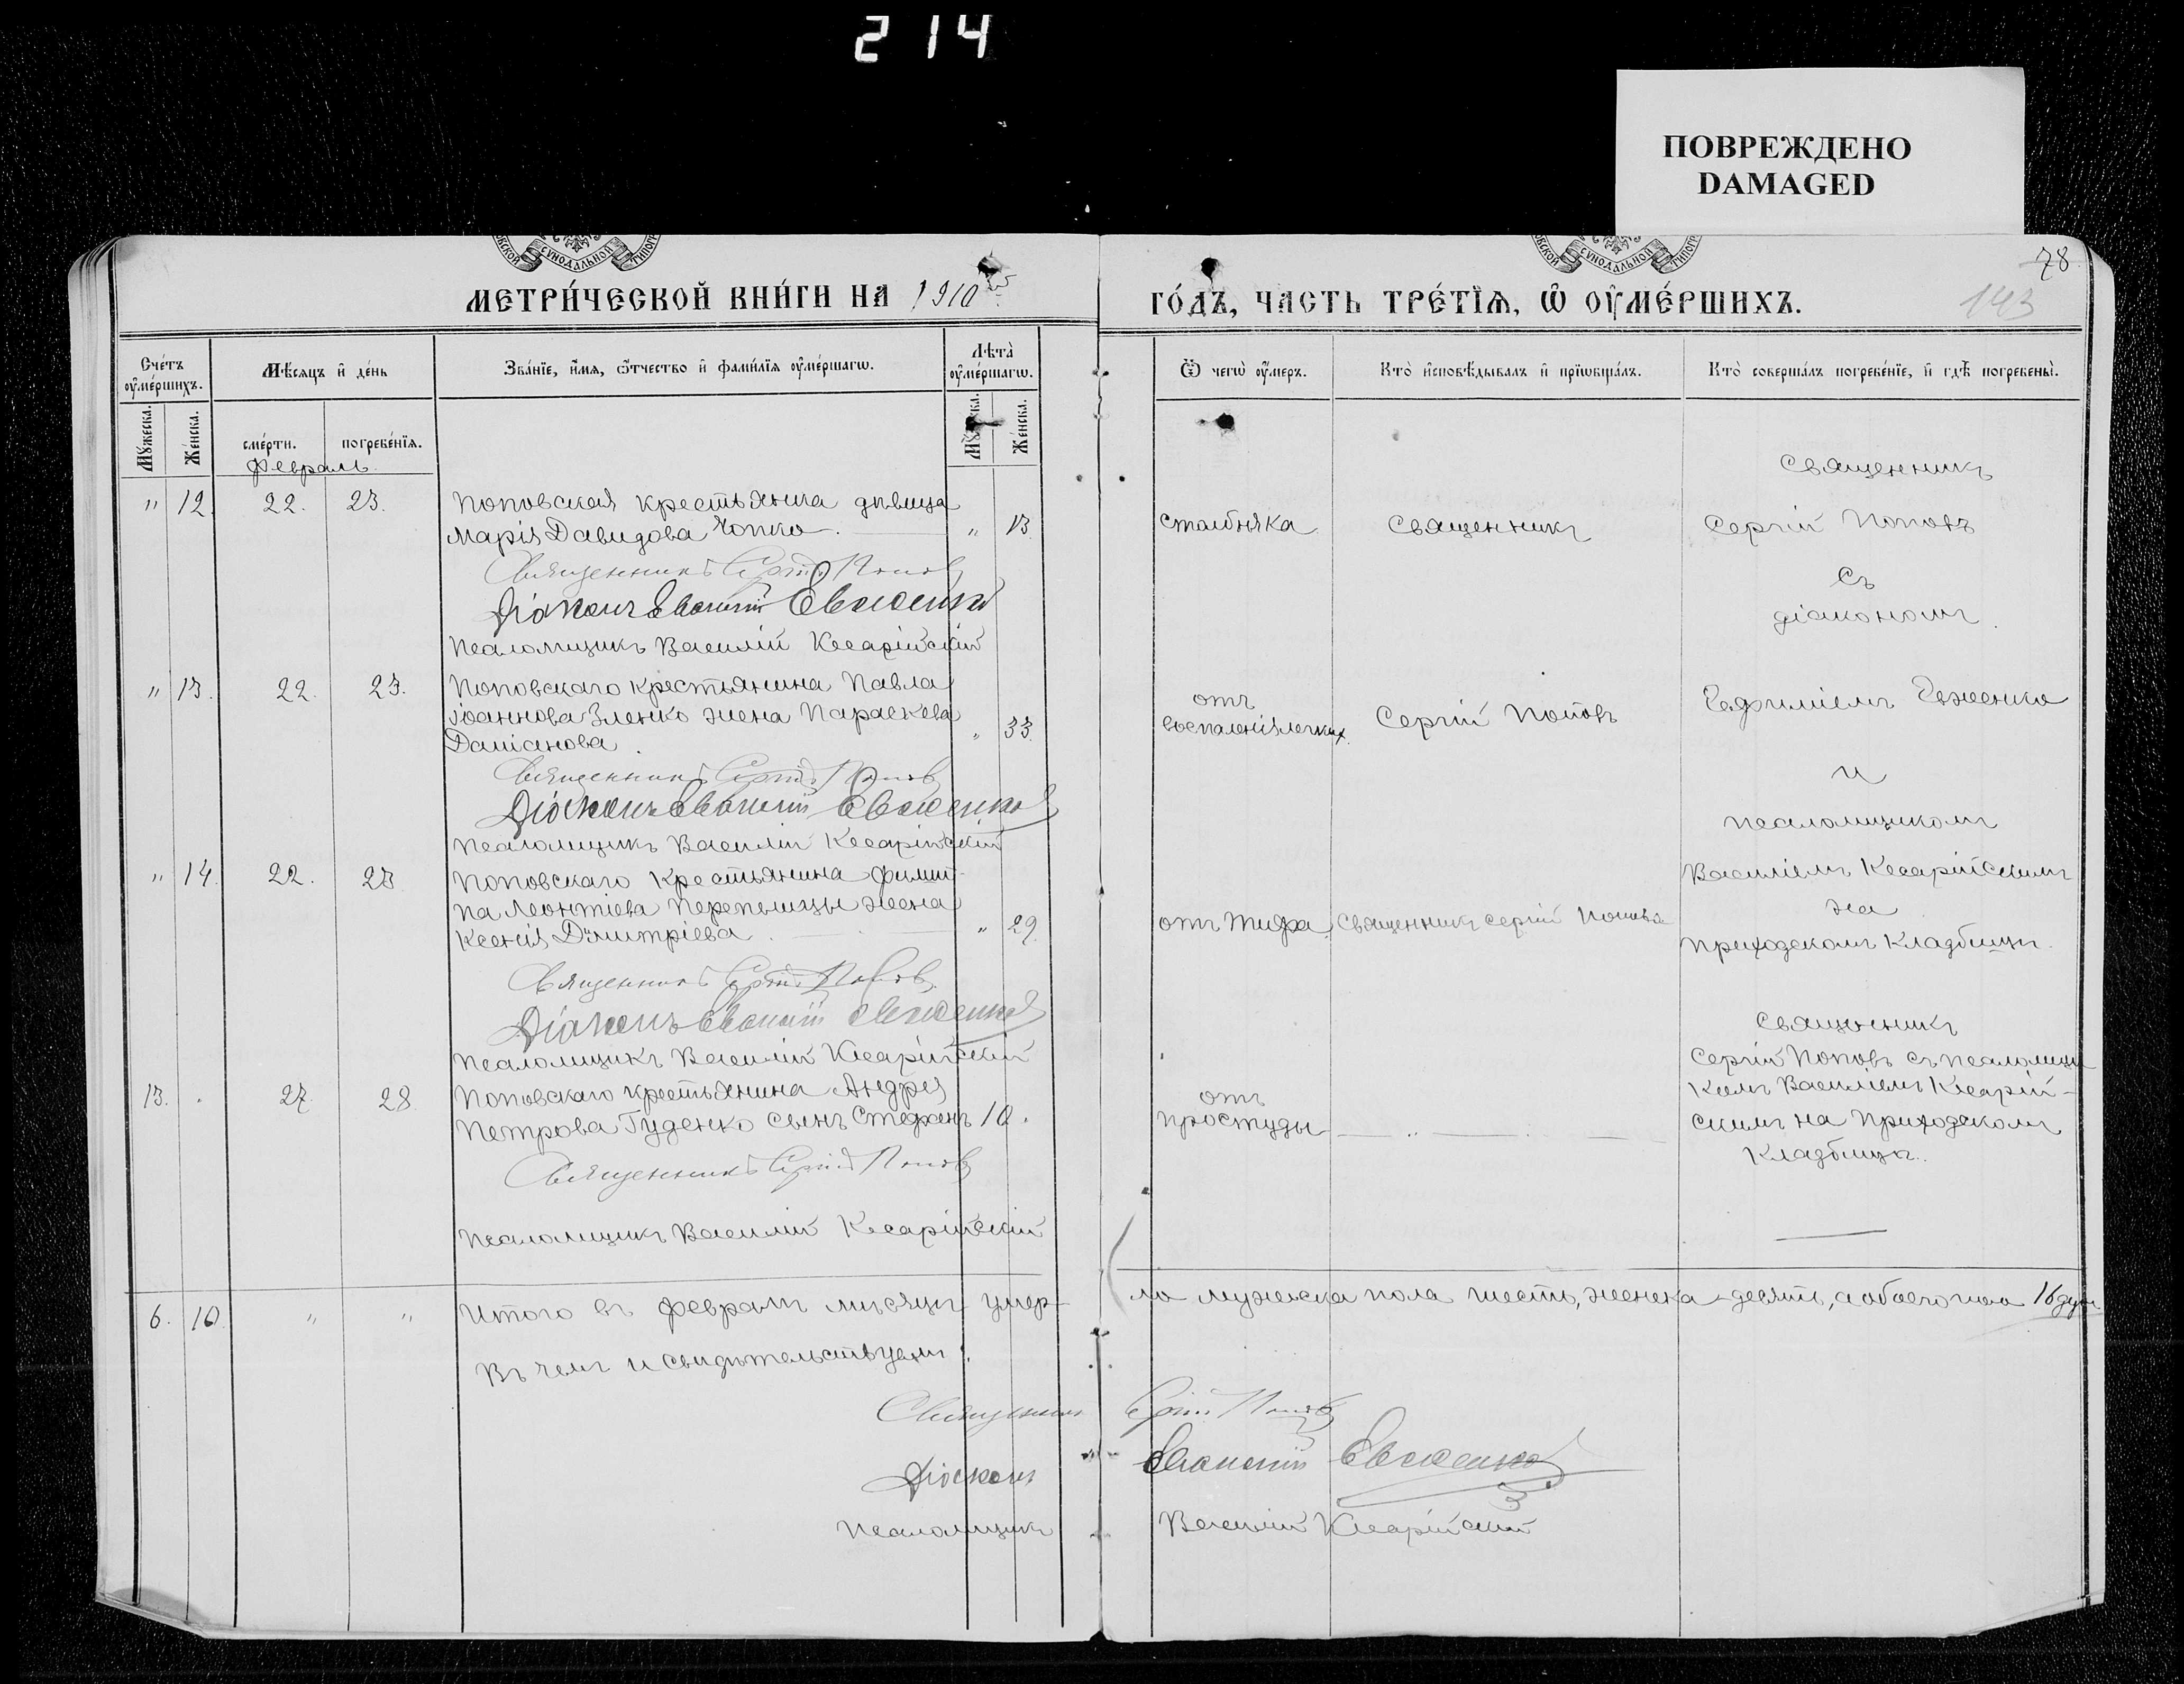 214
ПОВРЕЖДЕНО
DAMAGED
СѴНОДАЛЬНОЙ
СѴНОДАЛЬНОЙ
78
143
МЕТРИ́ЧЕСКОЙ КНИ́ГИ НА 1910
ГО́ДЪ, ЧАСТЬ ТРЕ́ТЇѦ, Ѡ ОУМЕ́РШИХЪ.
Сче́тъ оуме́ршихъ.
Мѣ́сяцъ и де́нь
Зва́нїе, и́мѧ, ѿтчество и фами́лїѧ оуме́ршагѡ.
Лѣта̀ оуме́ршагѡ.
Ѿ чегѡ̀ оу́меръ.
Кто̀ и҆сповѣ́дывалъ и прїѡбща́лъ.
Кто̀ соверша́лъ погребе́нїе, и гдѣ̀ погребены̀.
Мꙋ́жеска. Же́нска.
сме́рти. погребе́нїѧ.
Мꙋ́жеска. Же́нска.
Февраль
" 12. 22. 23. Поповская крестьянка дѣвица
Марія Давидова Чопко. " 13.
Священникъ Сергій Попов
Діаконъ Евфимій Евженко
Псаломщикъ Василій Кесарійскій
столбняка
Священникъ
Священникъ
Сергій Поповъ
съ
діакономъ
" 13. 22. 23. Поповскаго крестьянина Павла
Іоаннова Зленко жена Параскева
Даміанова. " 33.
Священникъ Сергій Попов
Діаконъ Евфимій Евженко
Псаломщикъ Василій Кесарійскій
отъ
воспаленія легких.
Сергій Поповъ
Евфиміемъ Евженко
и
псаломщикомъ
" 14. 22. 23 Поповскаго крестьянина Филип-
па Леонтіева Перепелицы жена
Ксенія Димитріева. " 29.
Священникъ Сергій Попов
Діаконъ Евфимій Евженко
Псаломщикъ Василій Кесарійскій
отъ тифа
Священникъ Сергій Поповъ
Василіемъ Кесарійскимъ
на
приходскомъ Кладбищѣ.
13. 27. 28 Поповскаго крестьянина Андрея
Петрова Гуденко сынъ Стефанъ 10.
Священникъ Сергій Попов
Псаломщикъ Василій Кесарійскій
отъ
простуды
— " —
Священникъ
Сергій Поповъ съ псаломщи-
комъ Василіемъ Кесарій-
скимъ на Приходскомъ
Кладбищѣ.
6. 10. " " Итого въ феврале мѣсяцѣ умер-
ло мужеска пола шесть, женска - девять, а обоего пола 16 душ.
Въ чемъ и свидѣтельствуемъ:
Священникъ Сергій Попов
Діаконъ Евфимій Евженко
Псаломщикъ Василій Кесарійскій